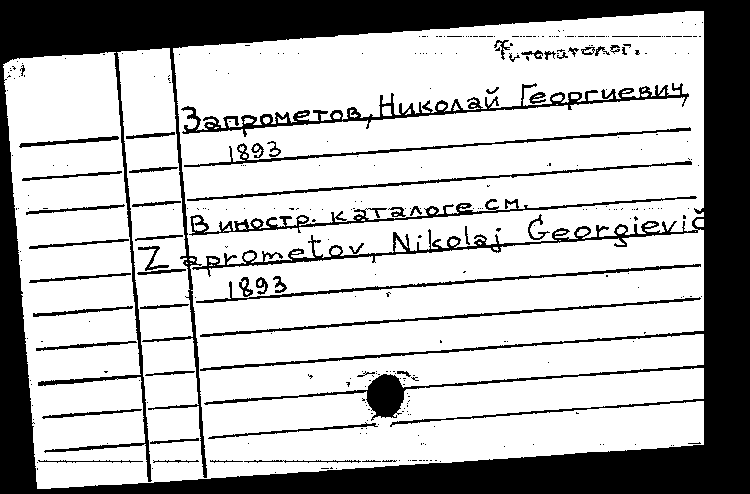 Фитопатолог.
Запрометов, Николай Георгиевич,
1893
В иностр. каталоге см.
Zaprometov, Nikolaj Georgievič
1893